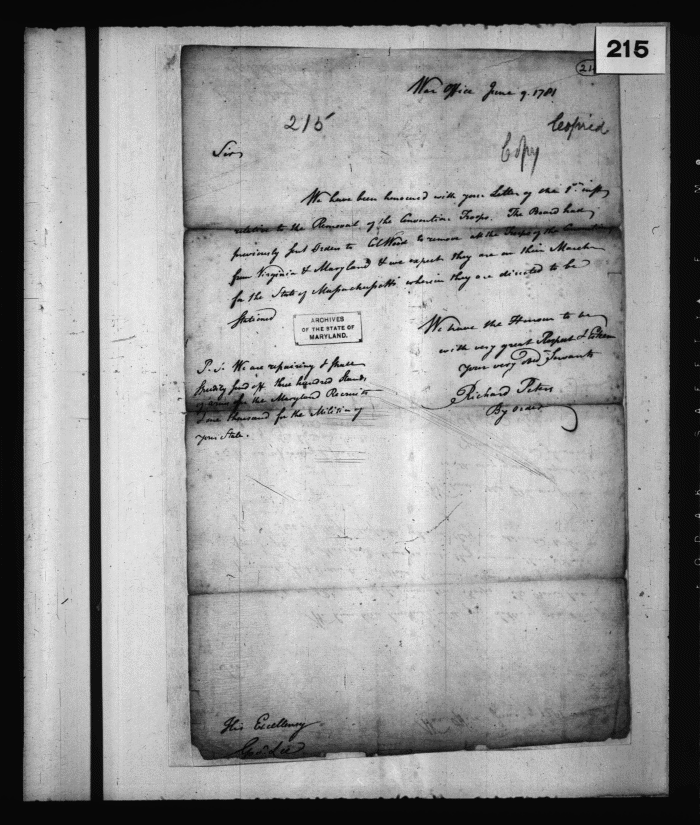 215
War Office June 9. 1781
215
Copied
Copy
Sir,
We have been honoured with your Letter of the 1st. inst.
relative to the Removal of the Convention Troops. The Board had
previously sent Orders to Col Wood to remove all the Troops of the Convention
from Virginia & Maryland & we expect they are on their March
for the State of Massachusetts wherein they are directed to be
stationed
ARCHIVES
OF THE STATE OF
MARYLAND.
We have the Honour to be
with very great Respect & Esteem
your very Obed Servants
Richard Peters
By order
P.S. We are repairing & shall
speedily send off three hundred Stands
of arms for the Maryland Recruits
& one thousand for the Militia of
your State.
His Excellency
Govr. Lee